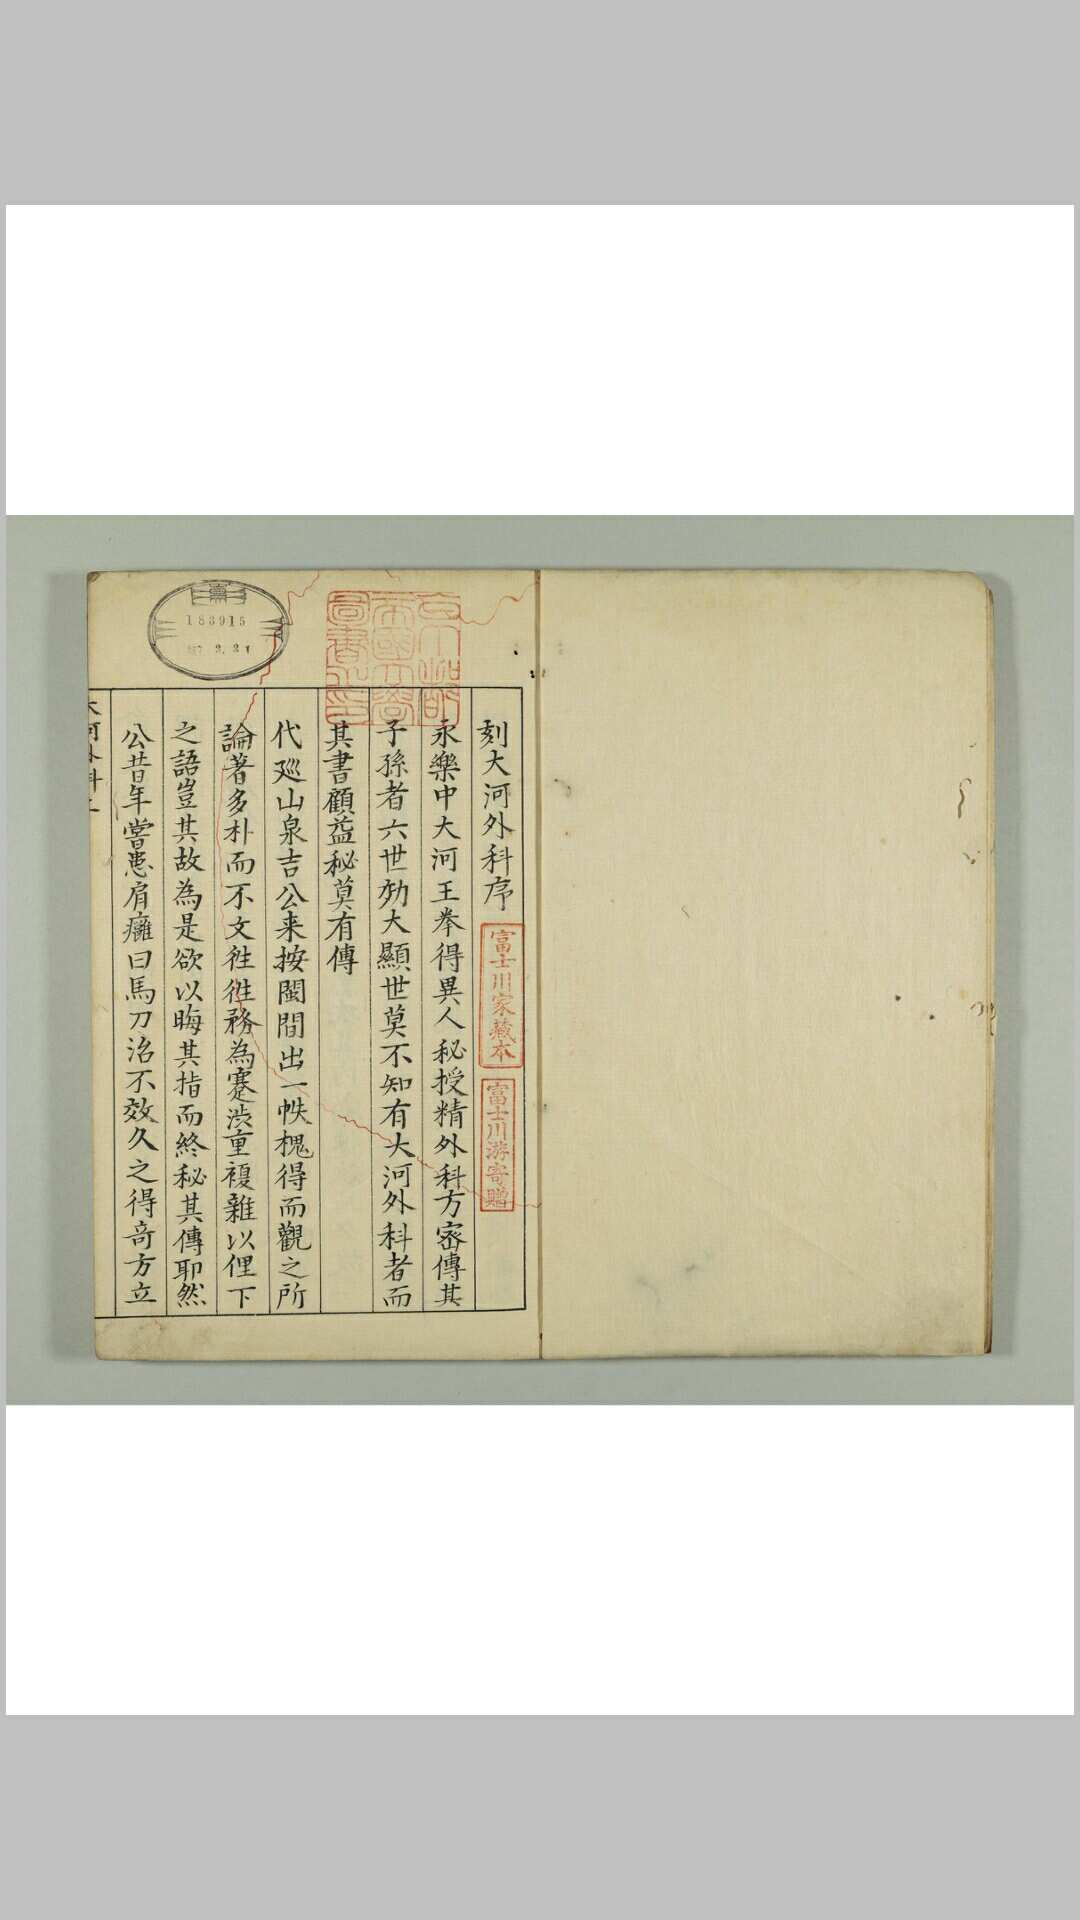 刻大河外科序
永樂中大河王拳得異人秘授精外科方密傳其
子孫者六世効大顯世莫不知有大河外科者而
其書顧益秘莫有傳
代廵山泉吉公来按閩間出一帙槐得而觀之所
論著多朴而不文徃徃務為蹇澁重複雜以俚下
之語豈其故為是欲以晦其指而終秘其傳耶然
公昔年嘗患肩癰曰馬刀治不效久之得奇方立
富士川家藏本
富士川游寄贈
京都帝國大學圖書之印
183915
大河外科